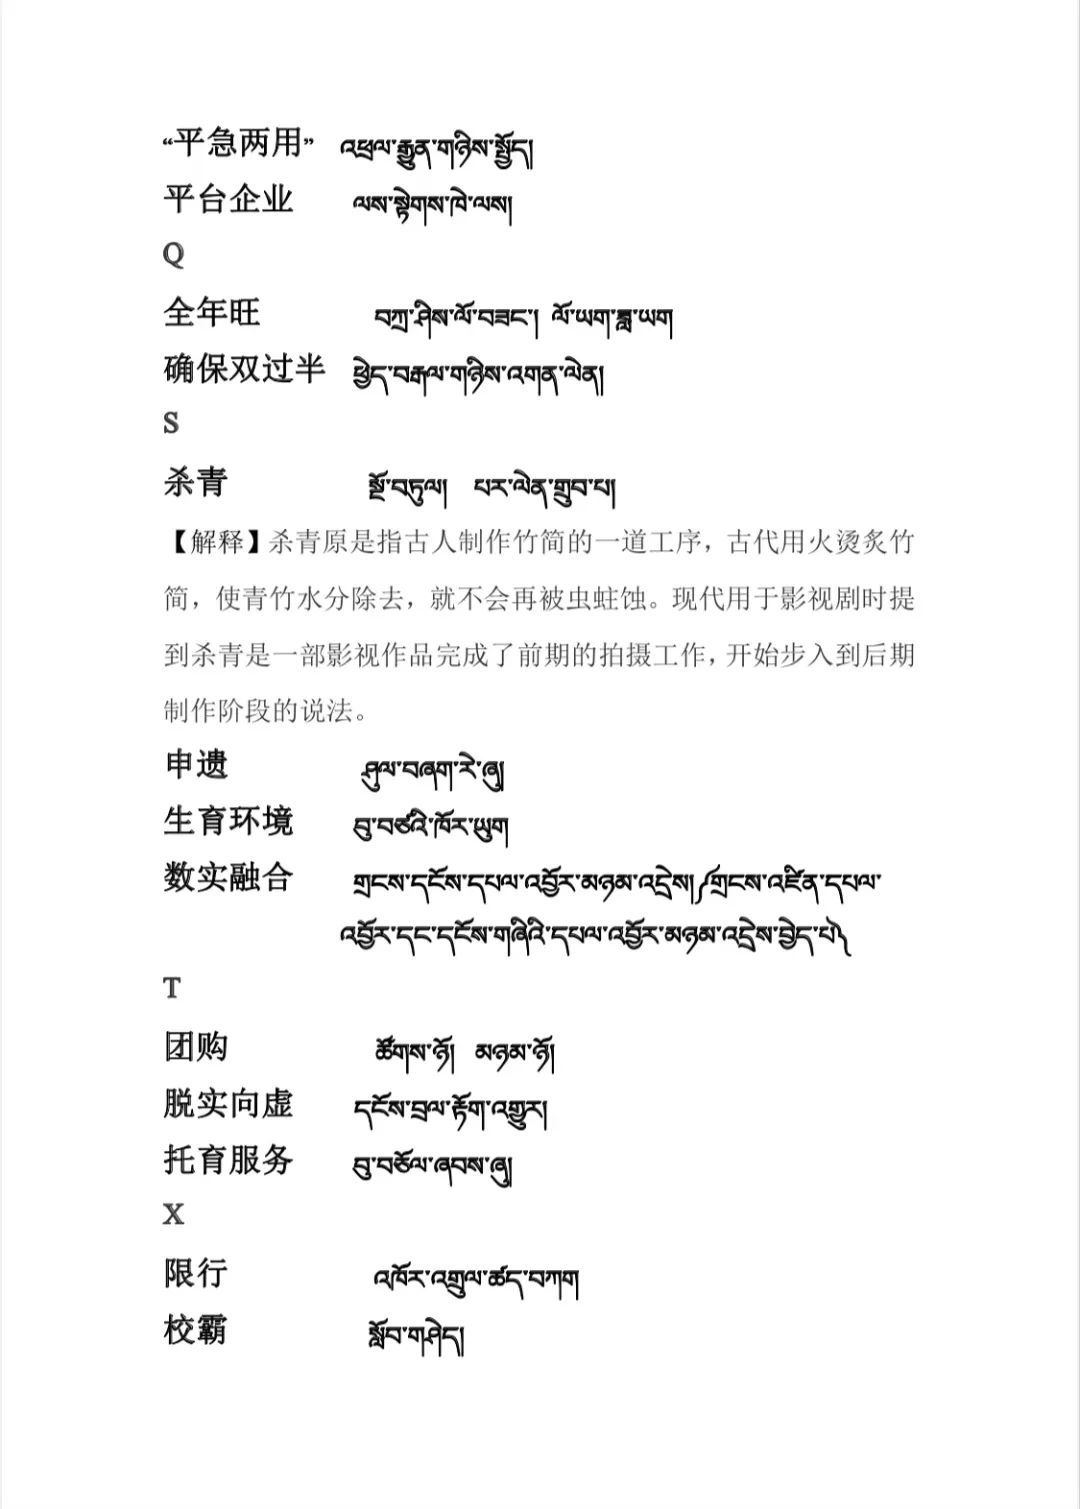 “平急两用” འཕྲལ་རྒྱུན་གཉིས་སྤྱོད།
平台企业 ལས་སྟེགས་ཁེ་ལས།
Q
全年旺 བཀྲ་ཤིས་ལོ་བཟང་། ལོ་ཡག་ཟླ་ཡག
确保双过半 ཕྱེད་བརྒལ་གཉིས་འགན་ལེན།
S
杀青 སྔོ་བཏུལ། པར་ལེན་གྲུབ་པ།
【解释】杀青原是指古人制作竹简的一道工序，古代用火烫炙竹
简，使青竹水分除去，就不会再被虫蛀蚀。现代用于影视剧时提
到杀青是一部影视作品完成了前期的拍摄工作，开始步入到后期
制作阶段的说法。
申遗 ཤུལ་བཞག་རེ་ཞུ།
生育环境 བུ་བཙའི་ཁོར་ཡུག
数实融合 གྲངས་དངོས་དཔལ་འབྱོར་མཉམ་འདྲེས། ༼གྲངས་འཛིན་དཔལ་
འབྱོར་དང་དངོས་གཞིའི་དཔལ་འབྱོར་མཉམ་འདྲེས་བྱེད་པ༽
T
团购 ཚོགས་ཉོ། མཉམ་ཉོ།
脱实向虚 དངོས་བྲལ་རྟོག་འགྱུར།
托育服务 བུ་བཅོལ་ཞབས་ཞུ།
X
限行 འཁོར་འགྲུལ་ཚད་བཀག
校霸 སློབ་གཤེད།